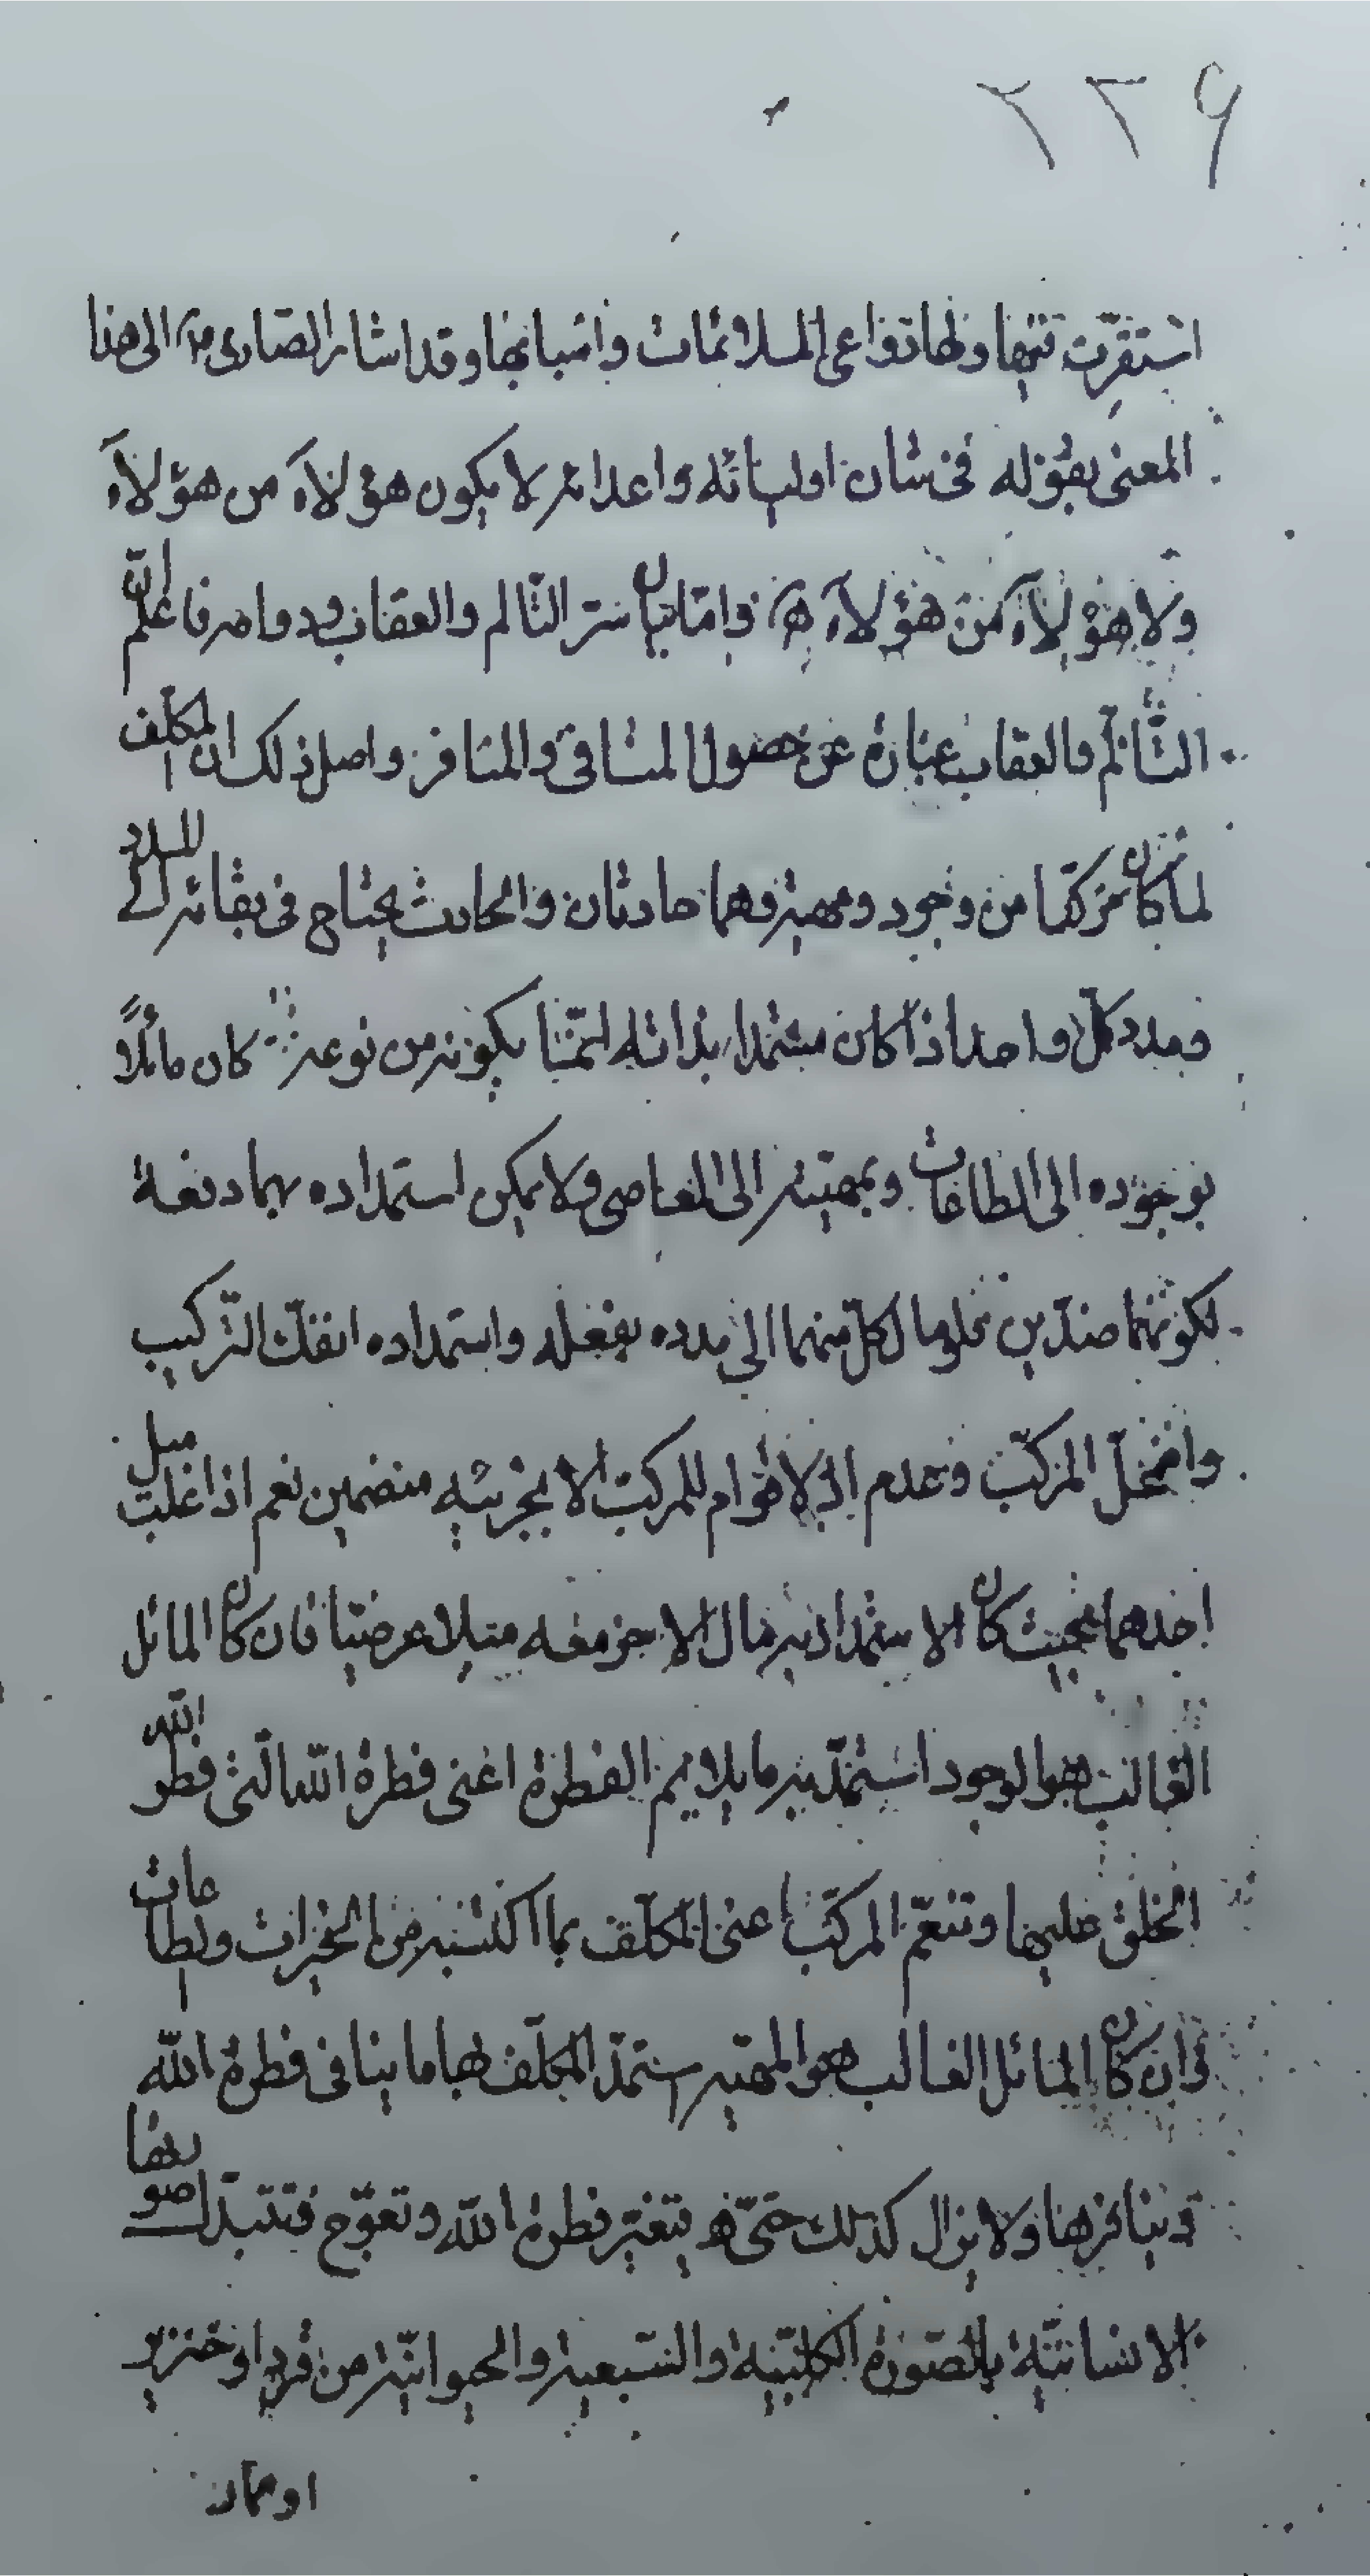 ٢٢٩
استقرت فيها ولها دواعى الملائمات واسبابها وقد اشار الصادق ع الى هذا
المعنى بقوله فى شان اوليائه واعدائه لا يكون هؤلاء من هؤلاء
ولا هؤلاء من هؤلاء وامّا بيان سرّ التالم والعقاب ودوامه فاعلم انّ
التّالّم والعقاب عبارة عن حصول المنافى والمنافر واصل ذلك ان المكلّف
لما كان مركبّا من وجود ومهية وهما حادثان والحادث يحتاج فى بقائه الى المدد
فمدد كلّ واحد اذا كان مستمدا بذاته انّما يكون من نوعه كان مائلاً
بوجوده الى الطاعات وبمهيّته الى المعاصى ولا يمكن استمداده بهما دفعة
لكونهما ضدّين فلو مال كلّ منهما الى مدده بفعله واستمداده انفكّ التّركيب
واضمحلّ المركّب وعدم اذ لا قوام للمركّب الا بجزئيه منضمين نعم اذا غلبت ميل
احدهما بحيث كان الاستمداد به مال الاخر معه ميلا عرضيّا فان كان المائل
الغالب هو الوجود استمدّ به ما يلايم الفطرة اعنى فطرة اللّه الّتى فطر اللّه
الخلق عليها وتنعّم المركّب اعنى المكلّف بما اكتسبه من الخيرات والطاعات
وان كان المائل الغالب هو المهيّة استمدّ المكلّف بها ما ينافى فطرة اللّه
وينافرها ولا يزال كذلك حتّى يتغيّر فطرة اللّه وتعوّج فتتبدّل صورتها
الانسانيّة بالصّورة الكلبيّة والسّبعية والحيوانيّة من قرد او خنزير
او حمار